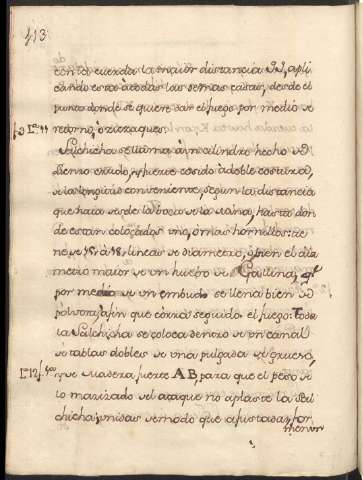 113
con la cuerda la maior distancia
cando esto à todas las demas caxas, desde el
punto donde se quiere dar el fuego por medio de
retorno, ò ziczaques.
Salchicha se llama à un cilindro hecho de
lienzo crudo, y fuerte cosido à doble costura,
de la longitud conveniente, segun la distancia
que haia desde la boca de la Mina, hasta don
de estan colocados uno, ò mas hornillos: tie
ne de lineas de diametro, ò bien el dia
medio maior de un huebo de Gallina, qe
por medio de un embudo se llena bien de
polvora, afin que corra seguido el fuego: toda
la Salchicha se coloca dentro de un canal
de tablas dobles de una pulgada de grueso,
y de Madera fuerte AB, para que el peso de
lo macizado del ataque no aplaste la Sal
chicha; unidas de modo que ajustadas, for
men un